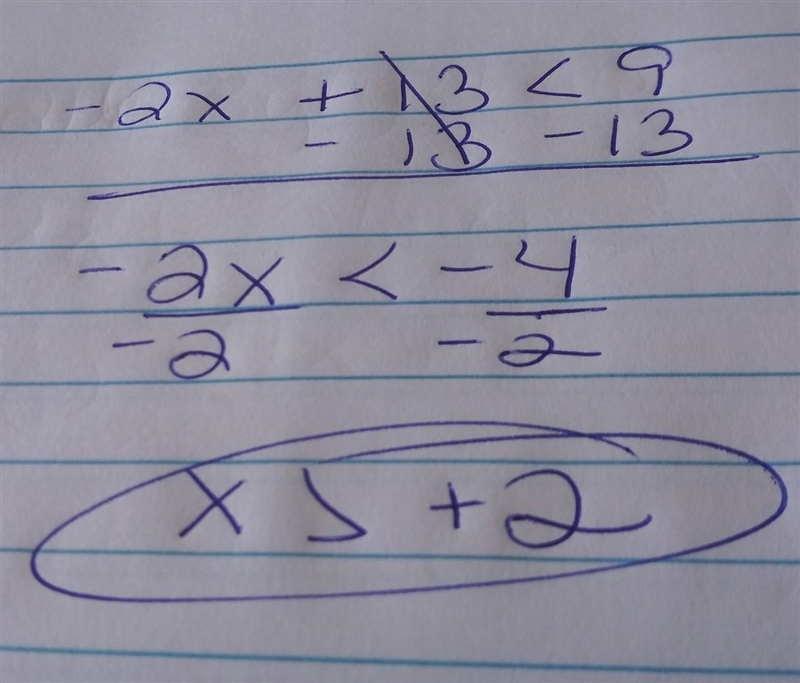 -2x + 13 < 9
- 13 - 13
-2x < -4
-2 -2
x > +2